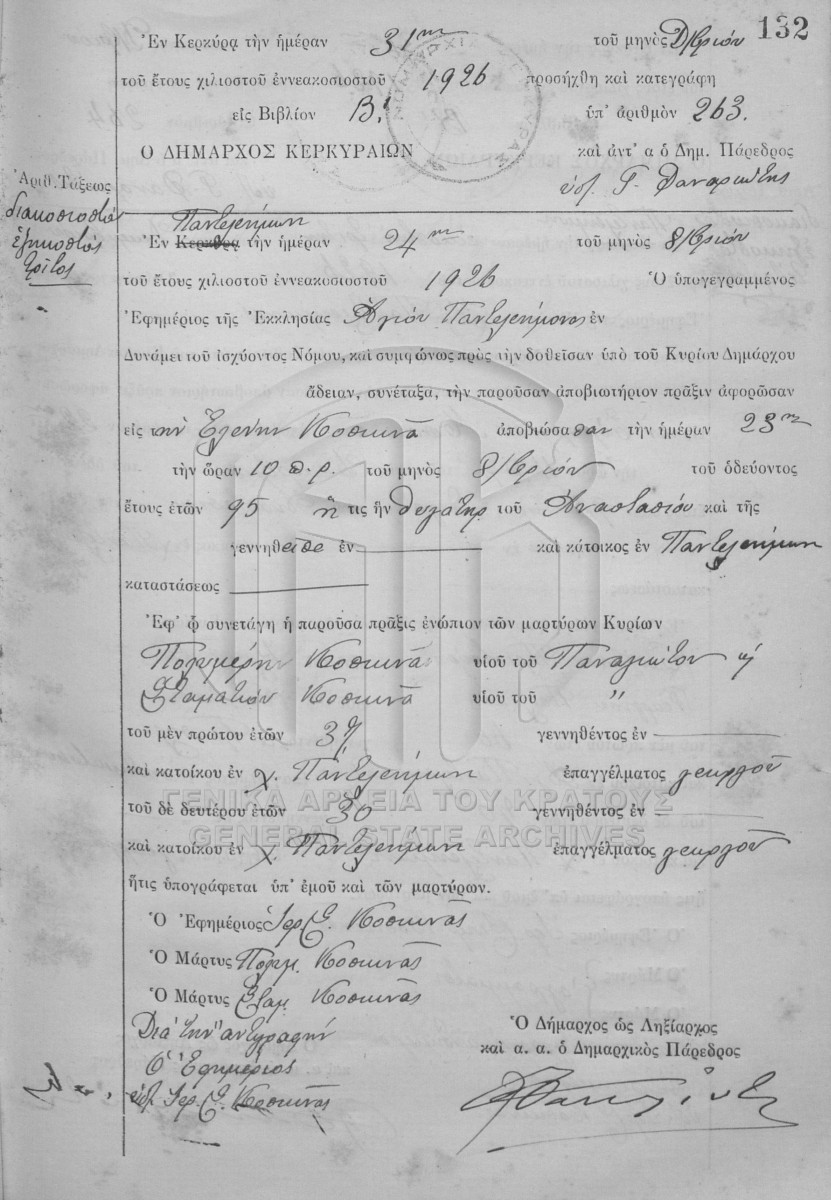 132
Ἐν Κερκύρᾳ τὴν ἡμέραν 31ην τοῦ μηνὸς Δ/βρίου
τοῦ ἔτους χιλιοστοῦ ἐννεακοσιοστοῦ 1926 προσήχθη καὶ κατεγράφη
εἰς Βιβλίον Β' ὑπ' ἀριθμὸν 263.
Ὁ ΔΗΜΑΡΧΟΣ ΚΕΡΚΥΡΑΙΩΝ καὶ ἀντ' α ὁ Δημ. Πάρεδρος
Γ. Φαναριώτης
Ἀριθ. Τάξεως
διακοσιοστὸς
ἑξηκοστὸς
τρίτος
Παντελεήμων
Ἐν Κερκύρᾳ τὴν ἡμέραν 24ην τοῦ μηνὸς 8/βρίου
τοῦ ἔτους χιλιοστοῦ ἐννεακοσιοστοῦ 1926 Ὁ ὑπογεγραμμένος
Ἐφημέριος τῆς Ἐκκλησίας Ἁγίου Παντελεήμονος ἐν
Δυνάμει τοῦ ἰσχύοντος Νόμου, καὶ συμφώνως πρὸς τὴν δοθεῖσαν ὑπὸ τοῦ Κυρίου Δημάρχου
ἄδειαν, συνέταξα, τὴν παροῦσαν ἀποβιωτήριον πρᾶξιν ἀφορῶσαν
εἰς τὴν Ἑλένην Κοσκινᾶ ἀποβιώσασαν τὴν ἡμέραν 23ην
τὴν ὥραν 10 π.μ. τοῦ μηνὸς 8/βρίου τοῦ ὁδεύοντος
ἔτους ἐτῶν 95 ἥ τις ἦν θυγάτηρ τοῦ Ἀναστασίου καὶ τῆς
γεννηθεῖσα ἐν καὶ κάτοικος ἐν Παντελεήμων
καταστάσεως
Ἐφ' ᾧ συνετάγη ἡ παροῦσα πρᾶξις ἐνώπιον τῶν μαρτύρων Κυρίων
Πολυμέρην Κοσκινᾶ υἱοῦ τοῦ Παναγιώτου
Σταματίου Κοσκινᾶ υἱοῦ τοῦ "
τοῦ μὲν πρώτου ἐτῶν 37 γεννηθέντος ἐν
καὶ κατοίκου ἐν χ. Παντελεήμων ἐπαγγέλματος γεωργοῦ
ΓΕΝΙΚΑ ΑΡΧΕΙΑ ΤΟΥ ΚΡΑΤΟΥΣ
τοῦ δὲ δευτέρου ἐτῶν 30 γεννηθέντος ἐν
GENERAL STATE ARCHIVES
καὶ κατοίκου ἐν χ. Παντελεήμων ἐπαγγέλματος γεωργοῦ
ἥτις ὑπογράφεται ὑπ' ἐμοῦ καὶ τῶν μαρτύρων.
Ὁ Ἐφημέριος Ἱερ. Σ. Κοσκινᾶς
Ὁ Μάρτυς Πολυμ. Κοσκινᾶς
Ὁ Μάρτυς Σταμ. Κοσκινᾶς
Διὰ τὴν ἀντιγραφὴν
Ὁ Ἐφημέριος
Ἱερ. Σ. Κοσκινᾶς
Ὁ Δήμαρχος ὡς Ληξίαρχος
καὶ α. α. ὁ Δημαρχικὸς Πάρεδρος